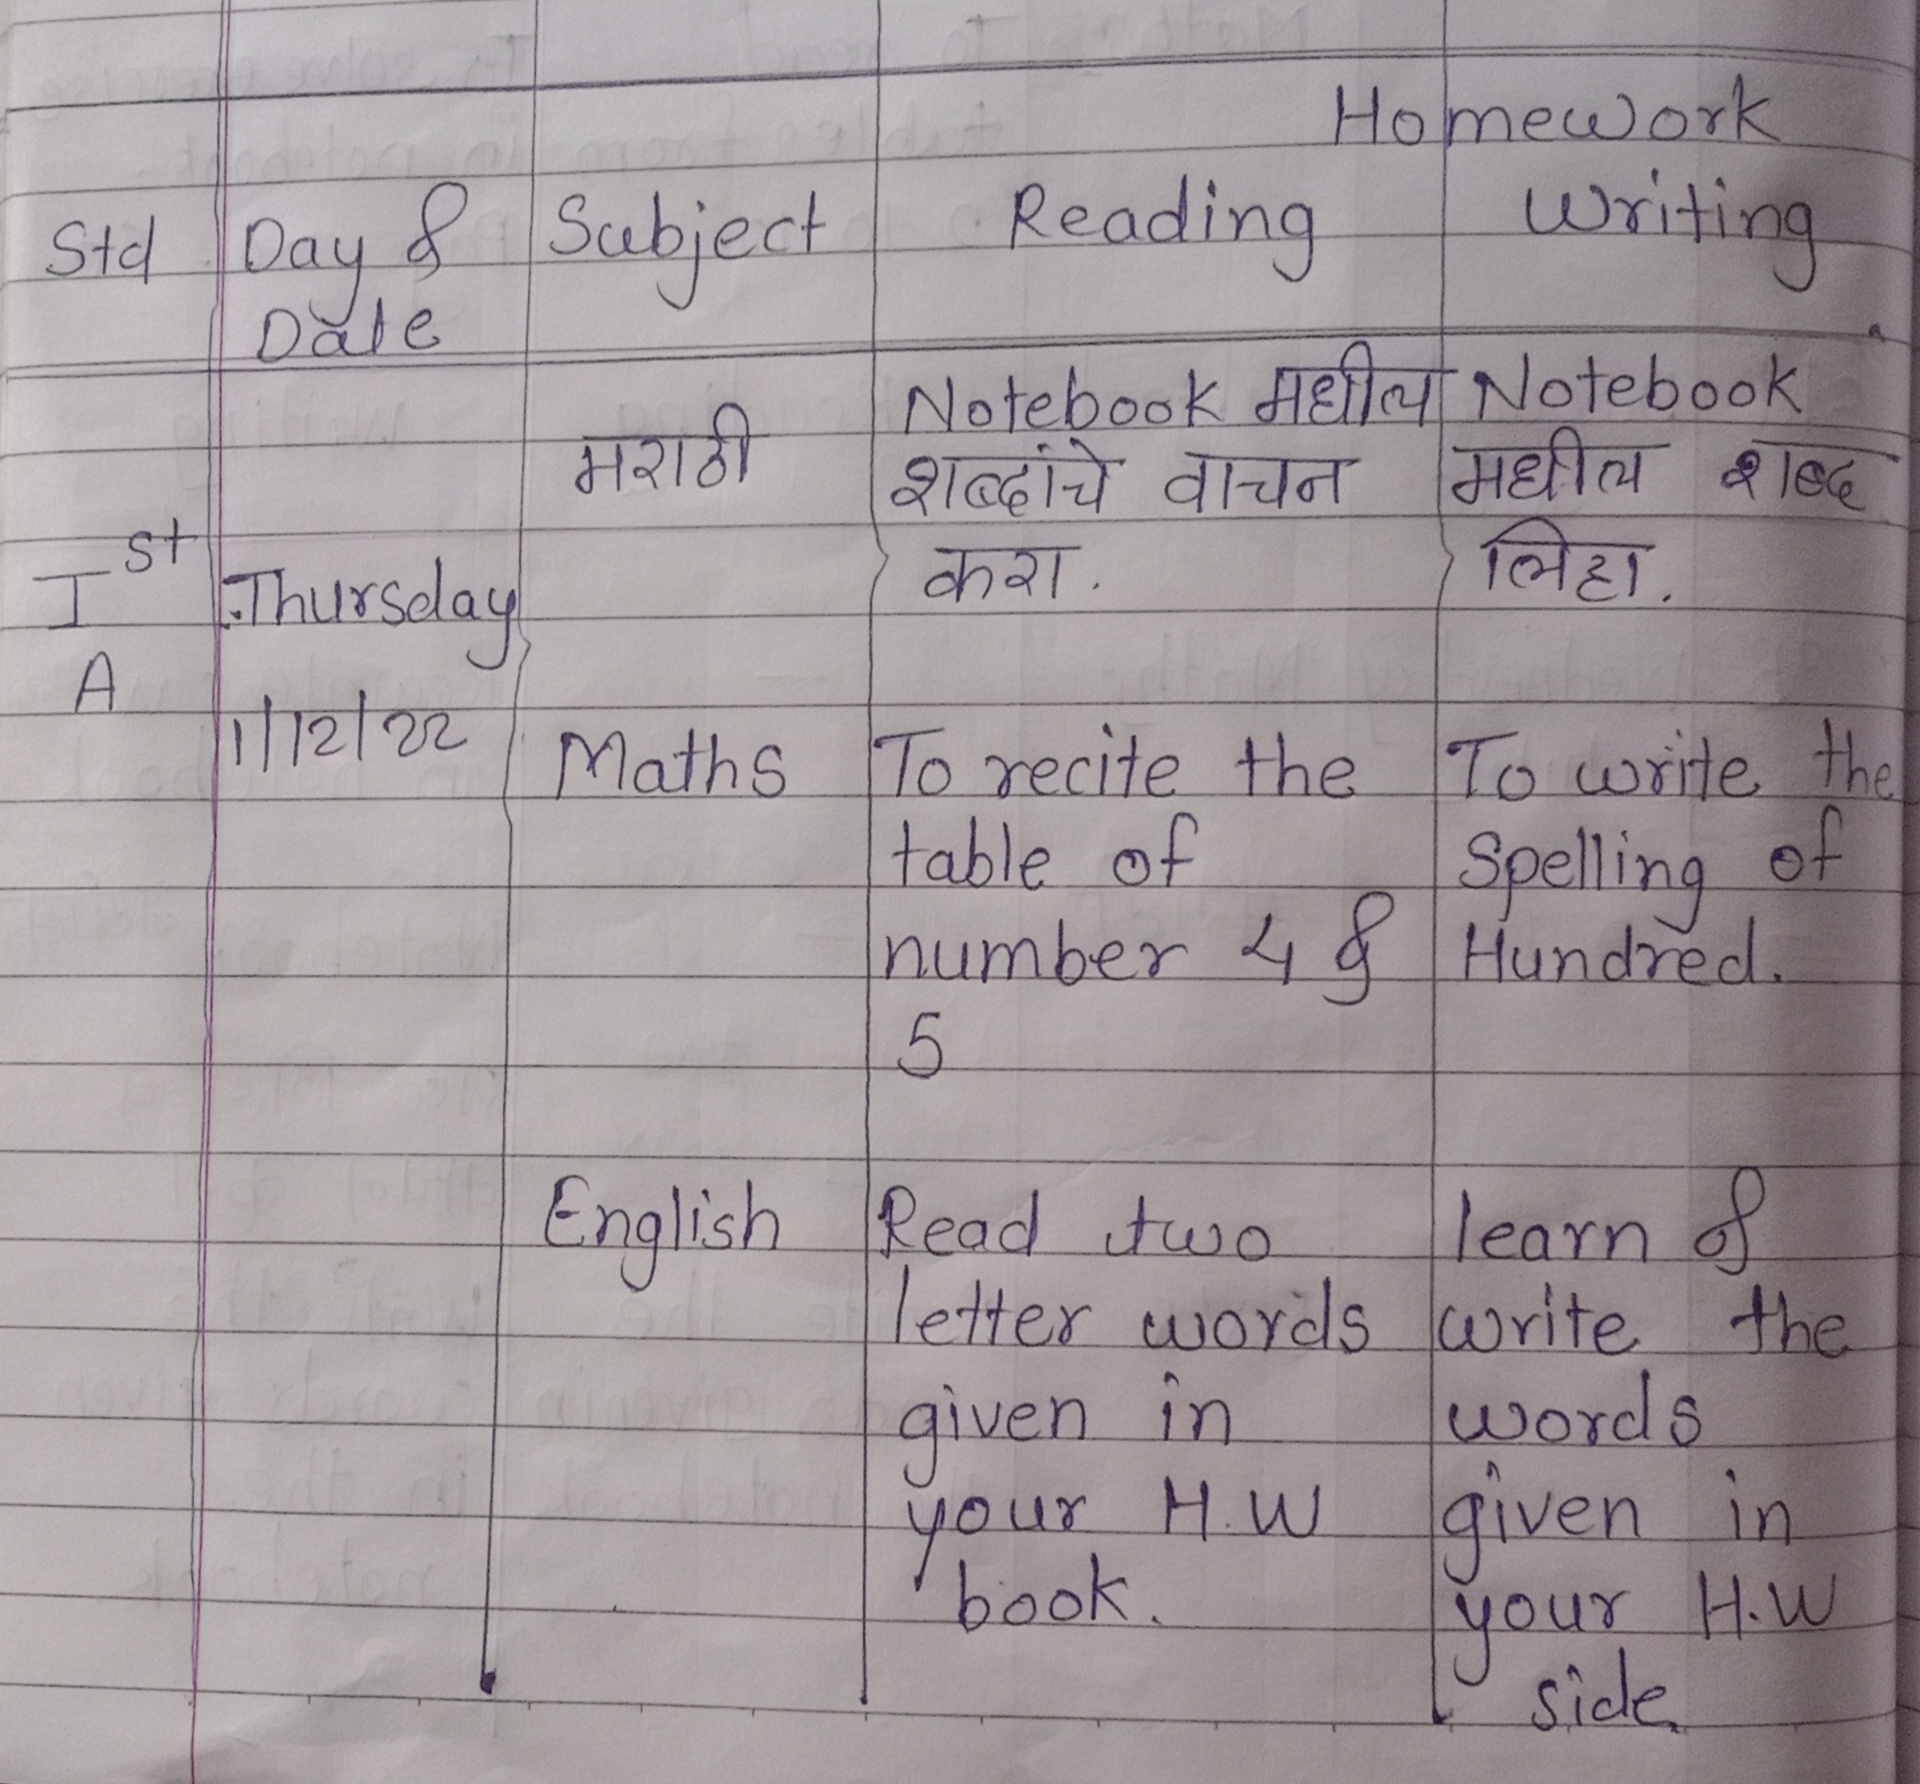 Homework
Std Day & Subject Reading Writing
Date
मराठी Notebook मधील Notebook
शब्दांचे वाचन मधील शब्द
करा. लिहा.
Ist Thursday
A
1/12/22 Maths To recite the To write the
table of Spelling of
number 4 & Hundred.
5
English Read two learn &
letter words write the
given in words
your H.W given in
book. your H.W
side